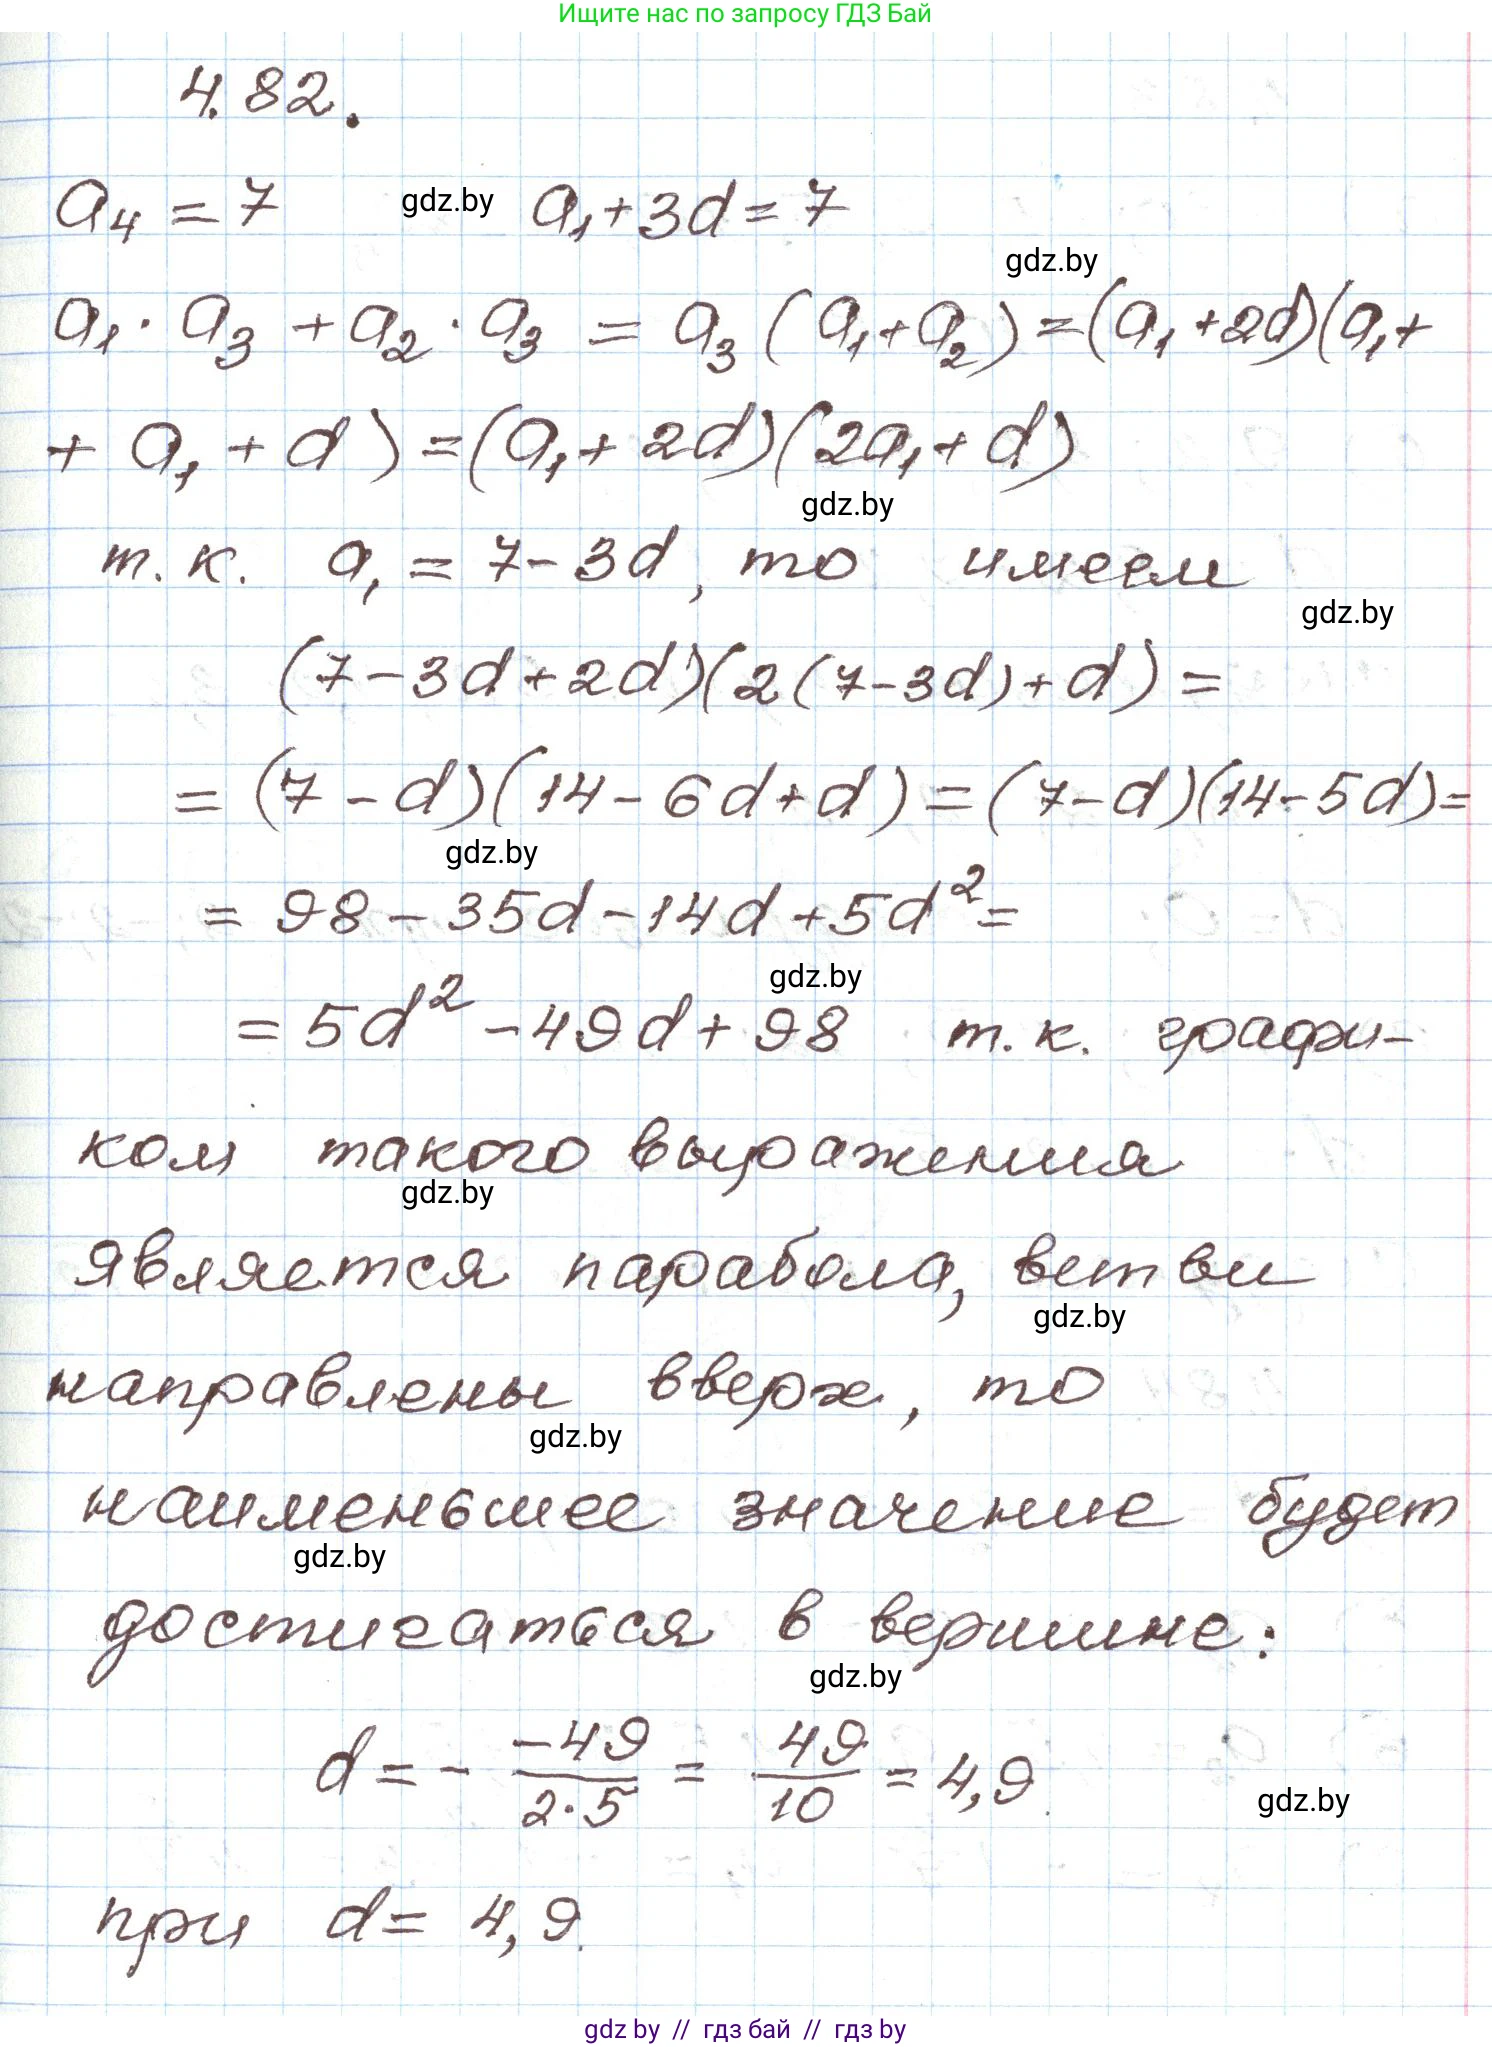 Ищите нас по запросу ГДЗ Бай
4.82.
a₄ = 7 gdz.by a₁+3d=7
gdz.by
a₁·a₃+a₂·a₃ = a₃(a₁+a₂)=(a₁+2d)(a₁+
+a₁+d)=(a₁+2d)(2a₁+d)
gdz.by
т.к. a₁=7-3d, то имеем
gdz.by
(7-3d+2d)(2(7-3d)+d)=
=(7-d)(14-6d+d)=(7-d)(14-5d)=
gdz.by
=98-35d-14d+5d²=
gdz.by
=5d²-49d+98 т.к. графи-
ком такого выражения
gdz.by
является парабола, ветви
gdz.by
направлены вверх, то
gdz.by
наименьшее значение будет
gdz.by
достигаться в вершине:
gdz.by
d=- -49/2·5 = 49/10 = 4,9.
gdz.by
при d= 4,9.
gdz by // гдз бай // гдз by